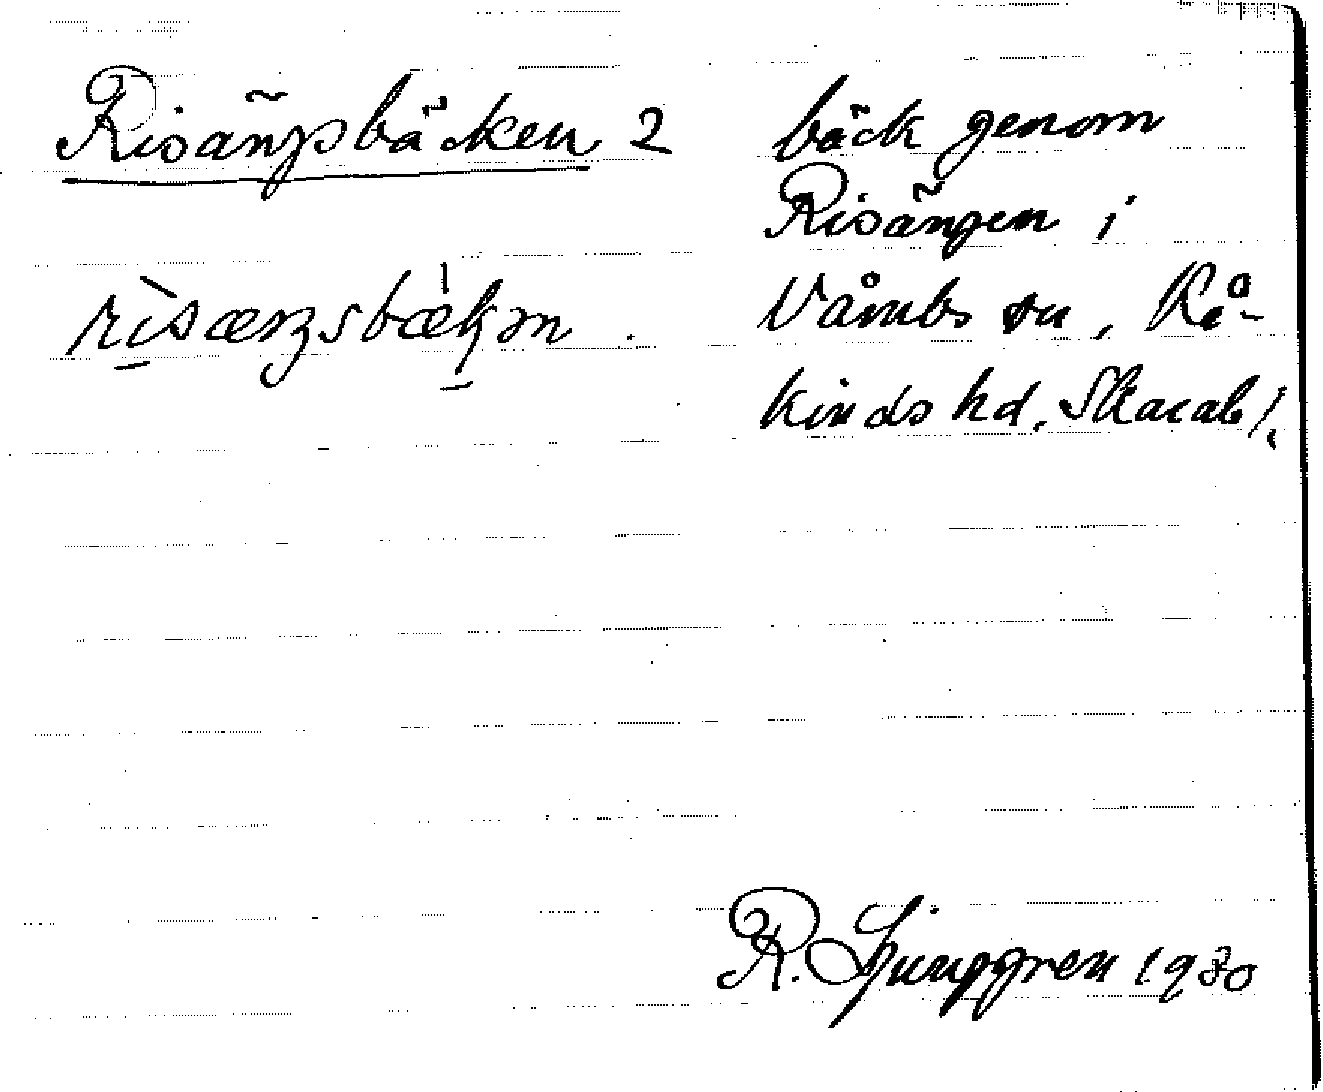 Risängsbäcken 2
risæŋsbækən.
bäck genom
Risängen i
Våmbs sn, Kå-
kinds hd, Skarab l.
R. Ljunggren 1930